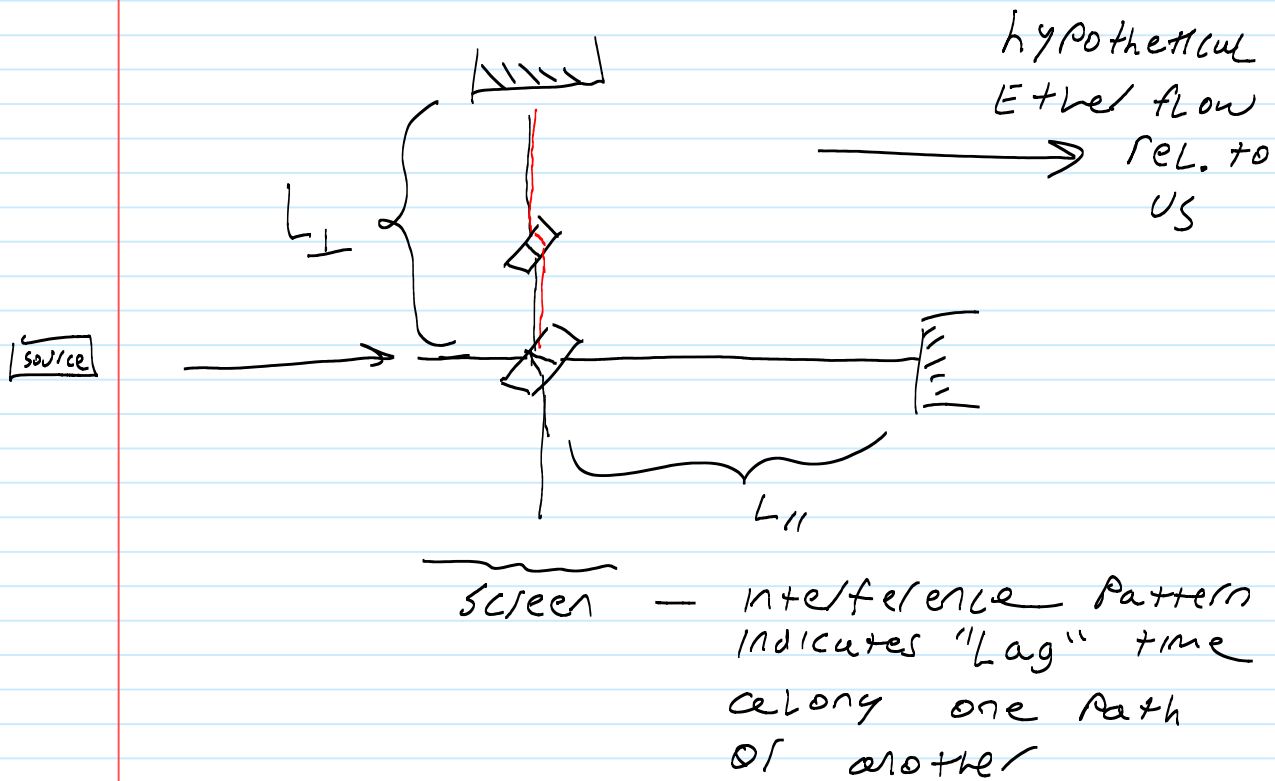 hypothetical
Ether flow
rel. to
us
L⊥
source
L//
screen – interference Pattern
indicates "Lag" time
along one Path
or another